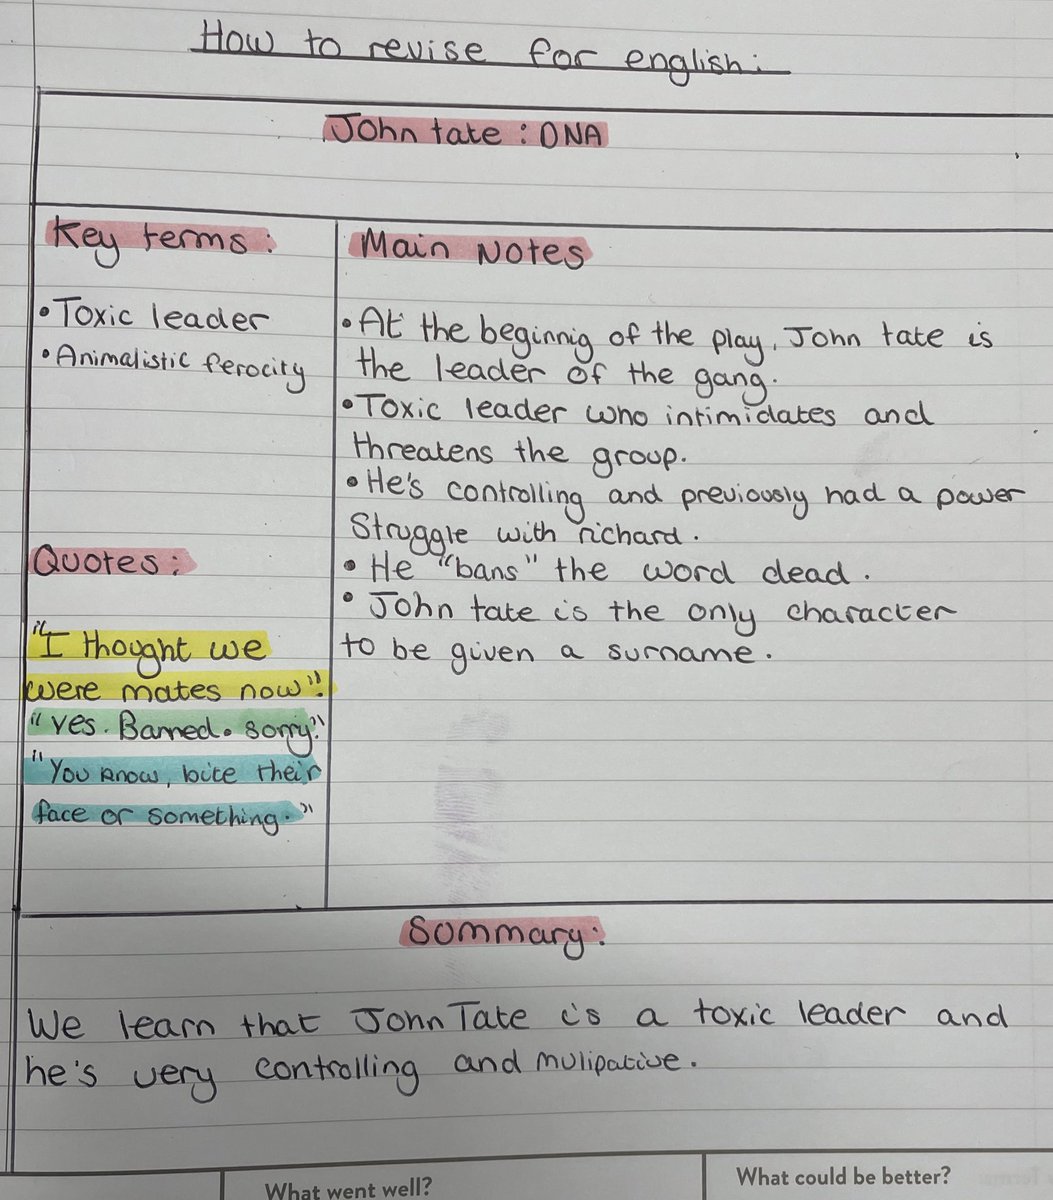 How to revise for english:
John tate : DNA
Key terms:
• Toxic leader
• Animalistic ferocity
Quotes:
"I thought we
were mates now".
"Yes. Banned. sorry."
"You know, bite their
face or something."
Main Notes
• At the beginnig of the play, John tate is
the leader of the gang.
• Toxic leader who intimidates and
threatens the group.
• He's controlling and previously had a power
struggle with richard.
• He "bans" the word dead.
• John tate is the only character
to be given a surname.
Summary:
We learn that John Tate is a toxic leader and
he's very controlling and mulipative.
What went well?
What could be better?